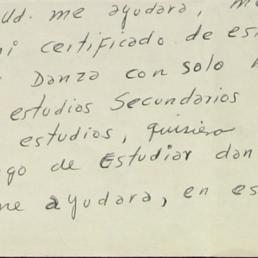 Ud. me ayudara,
mi certificado de es
Danza con solo
estudios Secundarios
estudios, quisiera
go de Estudiar dan
me ayudara, en es